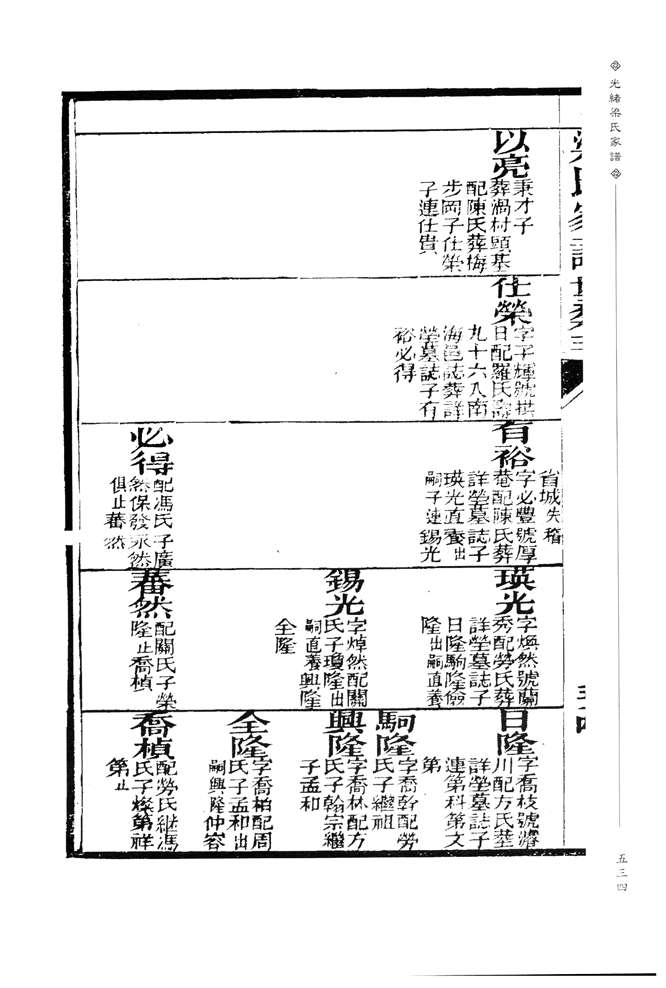 光緒梁氏家譜
五三四
梁氏家譜世系三
以亮
秉才子
葬渦村頭基
配陳氏葬梅
步岡子仕榮
子連仕貴
仕榮
字子輝號拱
日配羅氏壽
九十六入南
海邑誌葬詳
塋墓誌子有
裕必得
有裕
省城失稽
字必豐號厚
菴配陳氏葬
詳塋墓誌子
瑛光直養出
嗣子連錫光
必得
配馮氏子廣
然保發永然
俱止蕃然
瑛光
字煥然號蘭
秀配勞氏葬
詳塋墓誌子
日隆駒隆儉
隆出嗣直養
錫光
字焯然配關
氏子瓊隆出
嗣直養興隆
全隆
蕃然
配關氏子榮
隆止喬楨
日隆
字喬枝號濬
川配方氏塟
詳塋墓誌子
連第科第文
第
駒隆
字喬幹配勞
氏子繼祖
興隆
字喬林配方
氏子翰宗繼
子孟和
全隆
字喬柏配周
氏子孟和出
嗣興隆仲容
喬楨
配勞氏繼馮
氏子燦第祥
第止